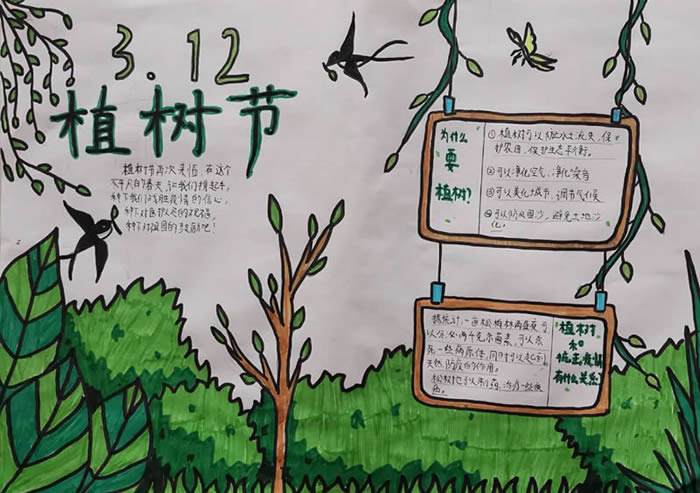 3.12
植树节
植树节再次来临,在这个
不平凡的春天,让我们携起手,
种下我们战胜疫情的信心,
种下对医护人员的祝福,
种下对祖国的鼓励吧!
为什么
要
植树?
①植树可以防止水土流失,保
护农田,保护生态平衡。
②可以净化空气,净化噪音
③可以美化城市,调节气候
④可以防风固沙,避免土地沙
化。
据统计,一亩松柏林两昼夜可
以分泌两千克杀菌素,可以杀
死一些病原体,同时可以起到
天然防疫的作用。
松树也可以制药,治疗一些疾
病。
植树
和
抗击疫情
有什么关系?